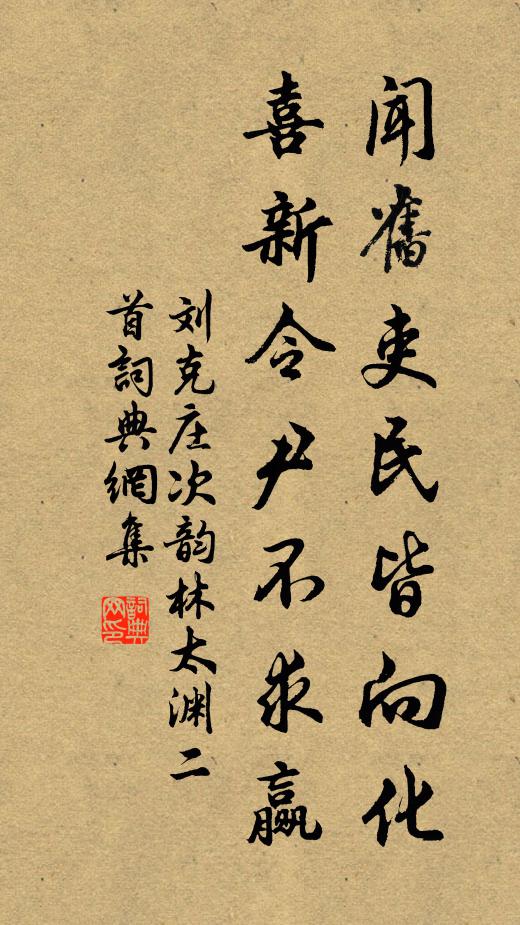 闻舊吏民皆向化
喜新令尹不求赢
刘克庄次韵林太渊二
首詞典網集
詞典
网印